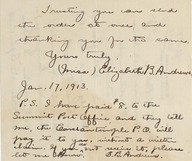 Trusting you can send
the order at once and
thanking you for the same.
Yours truly,
(Miss) Elizabeth B. Andrews.
Jan. 17, 1913.
P.S. I have paid $8. to the
Summit Post Office and they tell
me, the Constantinople P.O. will
pay it to you, without a written
claim. If you do not receive it, please
let me know. E.B. Andrews.